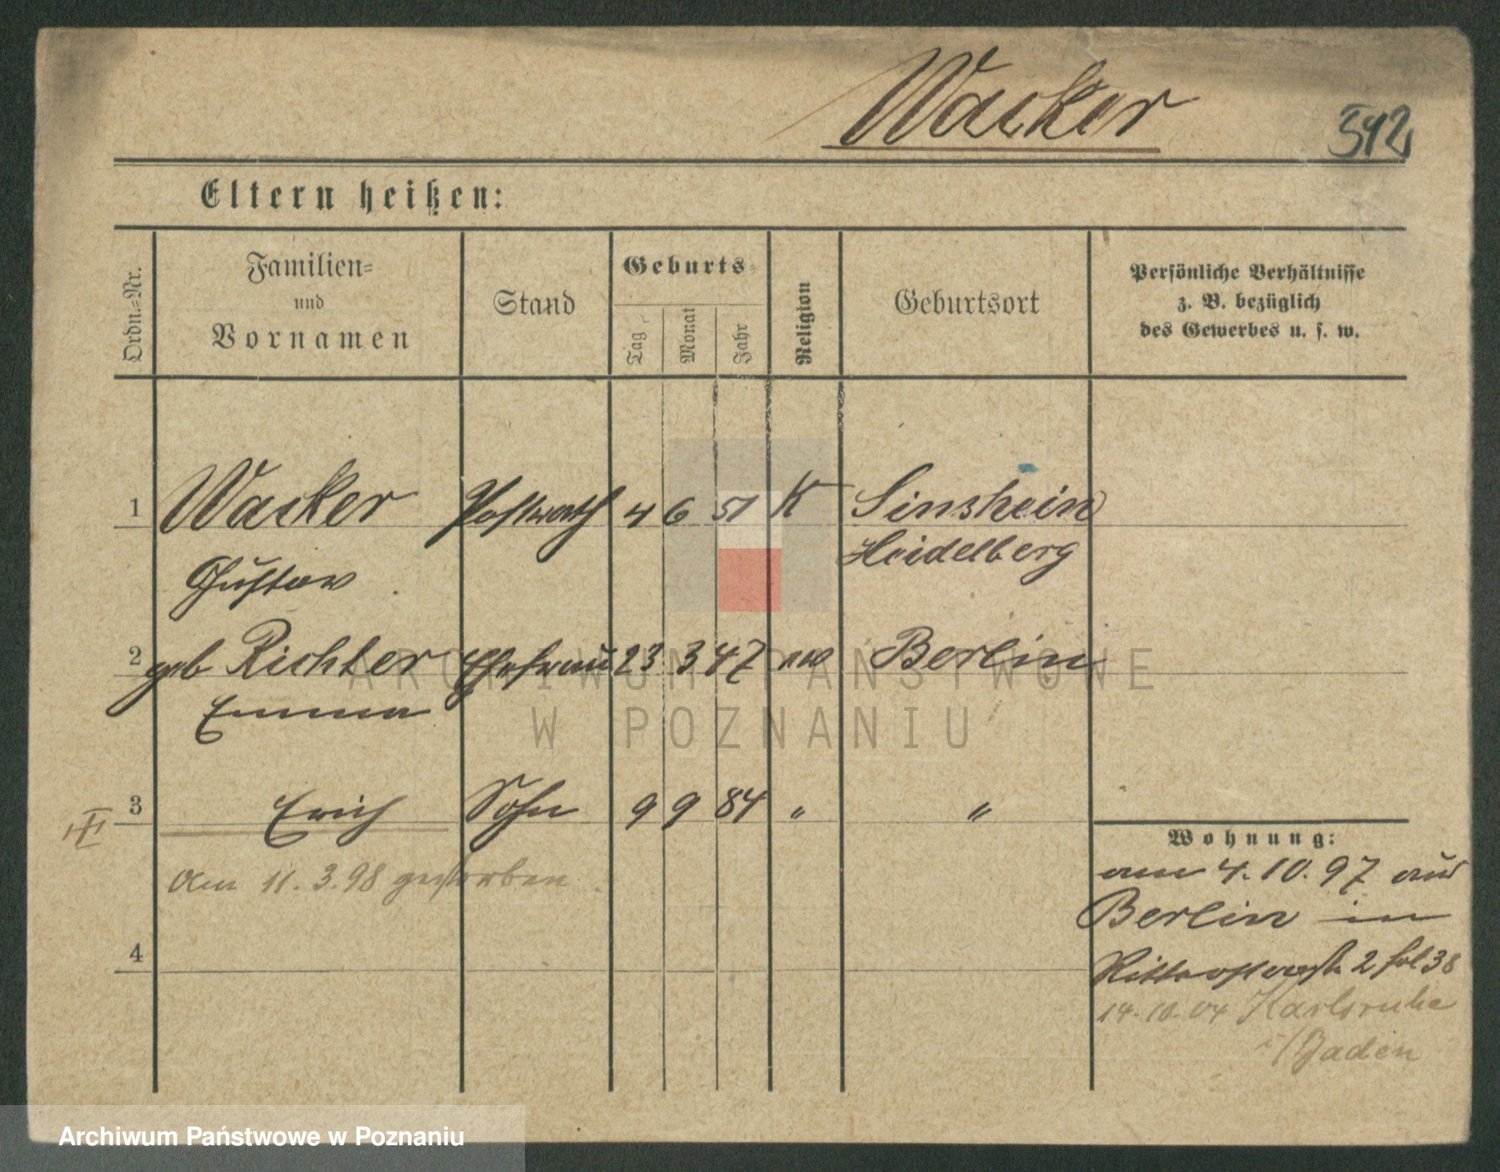 Wacker
342
Eltern heißen:
Ordn.-Nr.
Familien-
und
Vornamen
Stand
Geburts-
Tag
Monat
Jahr
Religion
Geburtsort
Persönliche Verhältnisse
z. B. bezüglich
des Gewerbes u. s. w.
1 Wacker Postrath 4 6 51 K Sinsheim
Heidelberg
Gustav
2 geb Richter Ehefrau 23 3 47 Berlin
Emma
3 Erich Sohn 9 9 84 " "
am 11.3.98 gestorben
4
Wohnung:
am 4.10.97 aus
Berlin in
2 fol 38
14.10.04 Karlsruhe
i/Baden
ARCHIWUM PAŃSTWOWE
W POZNANIU
Archiwum Państwowe w Poznaniu